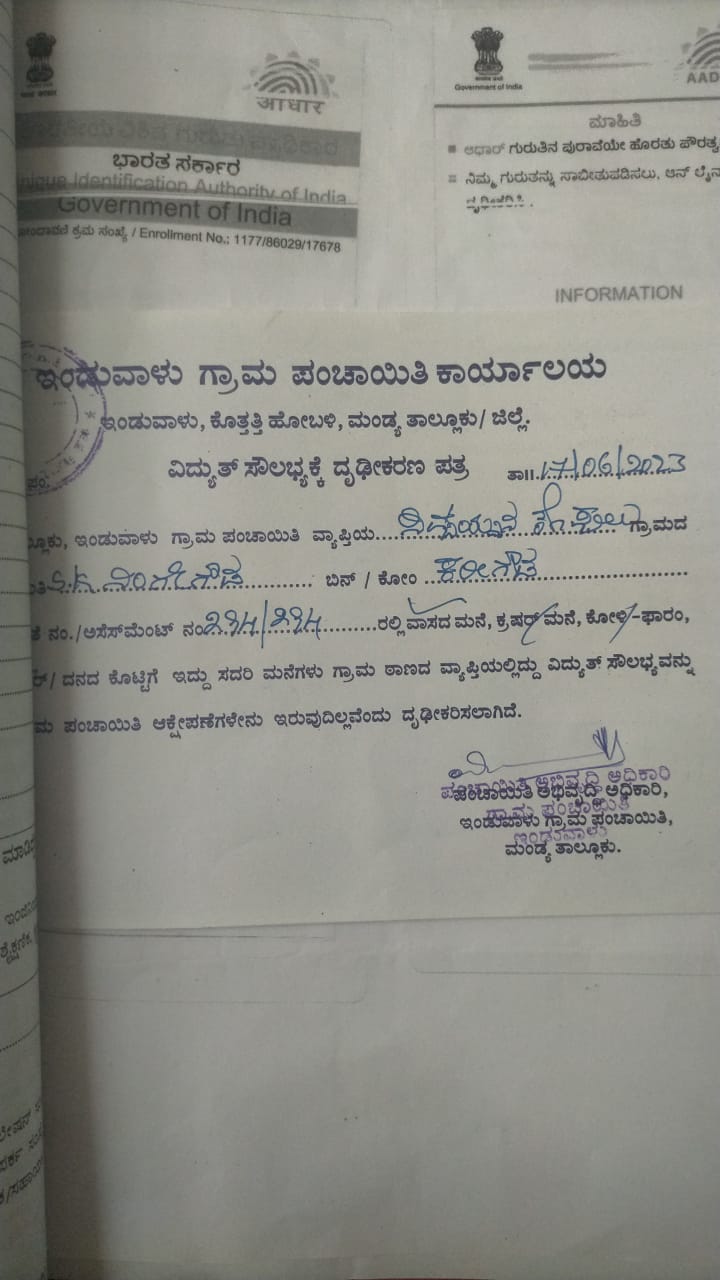 आधार
ಭಾರತ ಸರ್ಕಾರ
Unique Identification Authority of India
Government of India
ಕ್ರಮ ಸಂಖ್ಯೆ / Enrollment No.: 1177/86029/17678
Government of India
AAD
ಮಾಹಿತಿ
ಆಧಾರ್ ಗುರುತಿನ ಪುರಾವೆಯೇ ಹೊರತು ಪೌರತ್ವ
ನಿಮ್ಮ ಗುರುತನ್ನು ಸಾಬೀತುಪಡಿಸಲು, ಆನ್ ಲೈನ
INFORMATION
ಇಂಡುವಾಳು ಗ್ರಾಮ ಪಂಚಾಯಿತಿ ಕಾರ್ಯಾಲಯ
ಇಂಡುವಾಳು, ಕೊತ್ತತ್ತಿ ಹೋಬಳಿ, ಮಂಡ್ಯ ತಾಲ್ಲೂಕು/ ಜಿಲ್ಲೆ.
ವಿದ್ಯುತ್ ಸೌಲಭ್ಯಕ್ಕೆ ದೃಢೀಕರಣ ಪತ್ರ ತಾ॥.17/06/2023
ಲ್ಲೂಕು, ಇಂಡುವಾಳು ಗ್ರಾಮ ಪಂಚಾಯಿತಿ ವ್ಯಾಪ್ತಿಯ ಕೊಪ್ಪಲು ಗ್ರಾಮದ
ನಿಂಗೇಗೌಡ ಬಿನ್ / ಕೋಂ ಕರೀಗೌಡ
ನಂ./ಅಸೆಸ್‌ಮೆಂಟ್ ನಂ.234/234 ರಲ್ಲಿ ವಾಸದ ಮನೆ, ಕ್ರಷರ್ ಮನೆ, ಕೋಳಿ-ಫಾರಂ,
/ ದನದ ಕೊಟ್ಟಿಗೆ ಇದ್ದು ಸದರಿ ಮನೆಗಳು ಗ್ರಾಮ ಠಾಣದ ವ್ಯಾಪ್ತಿಯಲ್ಲಿದ್ದು ವಿದ್ಯುತ್ ಸೌಲಭ್ಯವನ್ನು
ಮ ಪಂಚಾಯಿತಿ ಆಕ್ಷೇಪಣೆಗಳೇನು ಇರುವುದಿಲ್ಲವೆಂದು ದೃಢೀಕರಿಸಲಾಗಿದೆ.
ಪಂಚಾಯಿತಿ ಅಭಿವೃದ್ದಿ ಅಧಿಕಾರಿ
ಪಂಚಾಯಿತಿ ಅಭಿವೃದ್ದಿ ಅಧಿಕಾರಿ,
ಗ್ರಾಮ ಪಂಚಾಯಿತಿ
ಇಂಡುವಾಳು ಗ್ರಾಮ ಪಂಚಾಯಿತಿ,
ಇಂಡುವಾಳು
ಮಂಡ್ಯ ತಾಲ್ಲೂಕು.